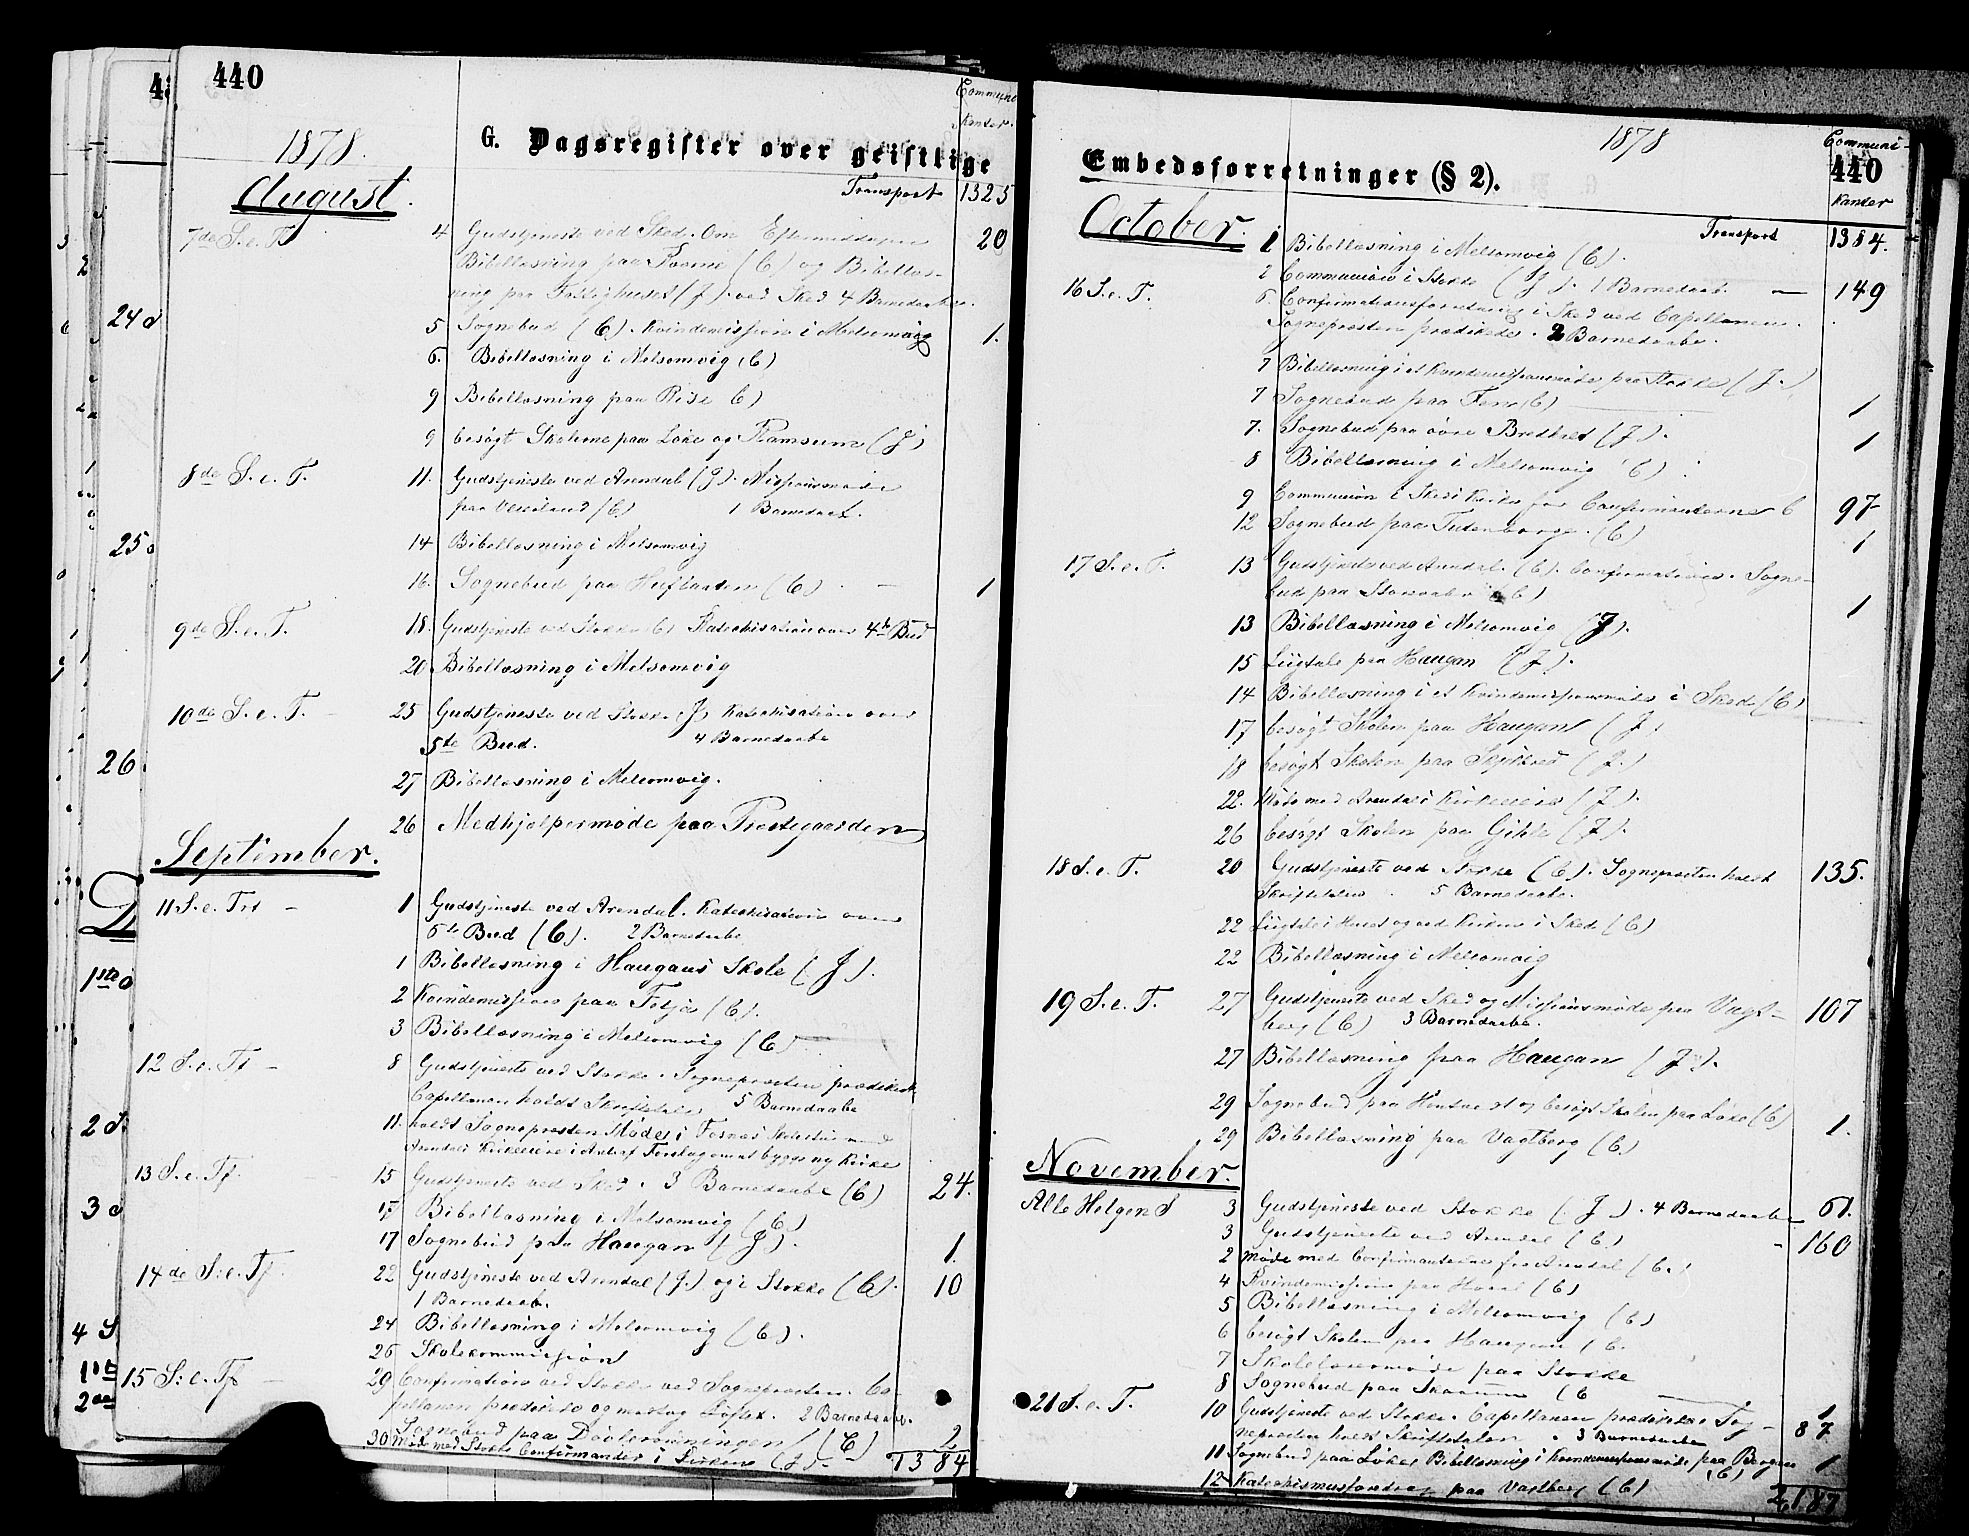 440
1878.
G. Dagsregister over geistlige
Communi
kanter.
Transport 1325
August.
7de S. e. T. 4 Gudstjeneste ved Sked. Om Eftermiddagen 20
Bibellæsning paa (C) og Bibellæs-
ning paa Fattighuset (J). ved Sked 4 Barnedaabe.
5 Sognebud (C). Kvindemission i Melsomvig 1.
6. Bibellæsning i Melsomvig (C)
9 Bibellæsning paa Rise C)
9 besøgt Skolerne paa Løke og Ramsum (J)
8de S. e. T. 11. Gudstjeneste ved Arendal (J). Missionsmøde
paa (C) 1 Barnedaab.
14 Bibellæsning i Melsomvig
16. Sognebud paa (C) . — 1
9de S. e. T. 18. Gudstjeneste ved Stokke (C) Katechisation over 4de Bud
20 Bibellæsning i Melsomvig
10de S. e. T. 25 Gudstjeneste ved Stokke (J) Katechisation over
5te Bud. 4 Barnedaabe
27 Bibellæsning i Melsomvig.
26 Medhjælpermøde paa Præstegaarden
September.
11 S. e. Trf – 1 Gudstjeneste ved Arendal. Katechisation over
6te Bud (C). 2 Barnedaabe
1 Bibellæsning i Haugans Skole (J).
2 Kvindemission paa (C).
3 Bibellæsning i Melsomvig (C)
12 S. e. Tf – 8 Gudstjeneste ved Stokke. Sognepræsten prædikede
Capellanen holdt Skriftetale 5 Barnedaabe
11. holdt Sognepræsten Møde i Fosnæs Skolestue med
Arendals Kirkeeiere i Forslag om at bygge ny Kirke
13 S. e. Tf. 15 Gudstjeneste ved Sked. 3 Barnedaabe (C) 24.
17 Bibellæsning i Melsomvig (C)
17 Sognebud paa Haugan (J). 1.
14de S. e. Tf. 22 Gudstjeneste ved Arendal (J.) og i Stokke (C). 10
1 Barnedaab.
24 Bibellæsning i Melsomvig (C).
26 Skolekommission
15 S. e. Tf – 29 Confirmation ved Stokke ved Sognepræsten. Ca-
pellanen prædikede og modtog Løftet. 2 Barnedaabe.
Sognebud paa (C) 2
30 Møde med Stokke Confirmander i Kirken (J). 1384
1878
Embedsforretninger (§ 2).
Communi-
440
kanter
October.
Transport 1384.
1 Bibellæsning i Melsomvig (C).
16 S. e. T. 2 Communion i Stokke (J). 1 Barnedaab. — 149
6. Confirmationsforretning i Sked ved Capellanen.
Sognepræsten prædikede. 2 Barnedaabe.
7 Bibellæsning i et Kvindemissionsmøde paa Stokke (J.)
7 Sognebud paa Fen (C) 1
7. Sognebud paa øvre Bredkret (J). 1
8 Bibellæsning i Melsomvig (C)
9 Communion i Skeds Kirke for Confirmanterne C 97
12 Sognebud paa (C) 1
17 S. e. T. 13 Gudstjeneste ved Arendal. (C). Confirmation. Sogne-
bud paa (C) 1
13 Bibellæsning i Melsomvig (J).
15 Liigtale paa Haugan (J).
14 Bibellæsning i et Kvindemissionsmøde i Sked (C)
17 besøgt Skolen paa Haugan (J)
18 besøgt Skolen paa (J.)
22. Møde med Arendals Kirkeeiere (J).
26 besøgt Skolen paa Gihle (J).
18 S. e. T. 20 Gudstjeneste ved Stokke (C). Sognepræsten holdt 135.
Skriftetalen. 5 Barnedaabe.
22 Liigtale i Huset og ved Kirken i Sked (C)
22 Bibellæsning i Melsomvig
19 S. e. T. 27 Gudstjeneste ved Sked og Missionsmøde paa Vagt- 107
berg (C) 3 Barnedaabe.
27 Bibellæsning paa Haugan (J).
29 Sognebud paa og besøgt Skolen paa Løke (C) 1.
29 Bibellæsning paa Vagtberg (C)
November.
Alle Helgen S 3 Gudstjeneste ved Stokke (J). 4 Barnedaabe 61.
3 Gudstjeneste ved Arendal (C.) 160
2 Møde med Confirmanterne fra Arendal (C.)
4 Kvindemission paa (C)
5 Bibellæsning i Melsomvig (C)
6 besøgt Skolen paa Haugan (C.
7 Skolelærermøde paa Stokke
8 Sognebud paa (C — 1
21 S. e. T. 10 Gudstjeneste ved Stokke. Capellanen prædikede. Sog- 87
nepræsten holdt Skriftetalen. 3 Barnedaabe
11 Sognebud paa Løke. Bibellæsning i Kvindemissionsmøde paa Bergan 1
(C)
12 Katekismusforedrag paa Vagtberg (C) 2,187